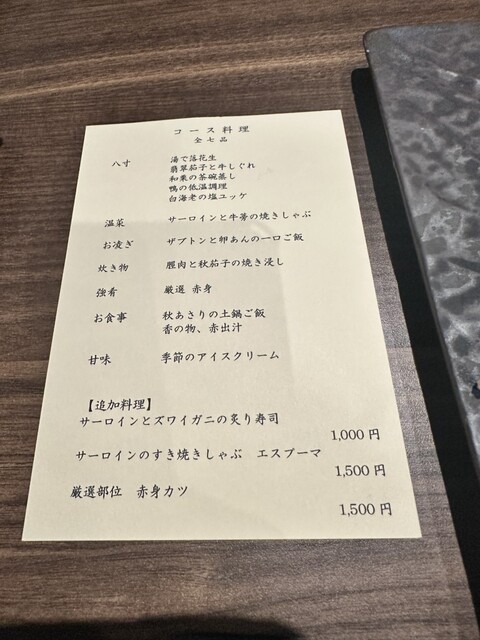 コース料理
全七品
八寸 湯で落花生
翡翠茄子と牛しぐれ
和栗の茶碗蒸し
鴨の低温調理
白海老の塩ユッケ
温菜 サーロインと牛蒡の焼きしゃぶ
お凌ぎ ザブトンと卵あんの一口ご飯
炊き物 脛肉と秋茄子の焼き浸し
強肴 厳選 赤身
お食事 秋あさりの土鍋ご飯
香の物、赤出汁
甘味 季節のアイスクリーム
【追加料理】
サーロインとズワイガニの炙り寿司
1,000 円
サーロインのすき焼きしゃぶ エスプーマ
1,500 円
厳選部位 赤身カツ
1,500 円